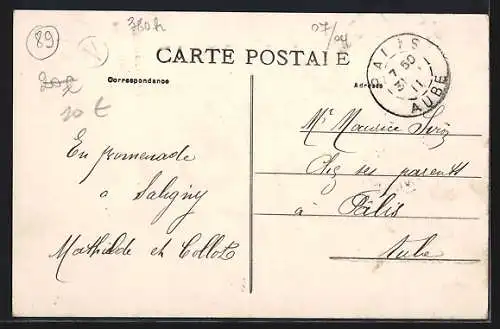 89
V
380h
07/04
CARTE POSTALE
Correspondance
Adresse
PALIS
7 50
31 1
11
AUBE
10 €
En promenade
a Saligny
Mathilde et Collot
Mr Maurice
Chez ses parents
à Pâlis
Aube